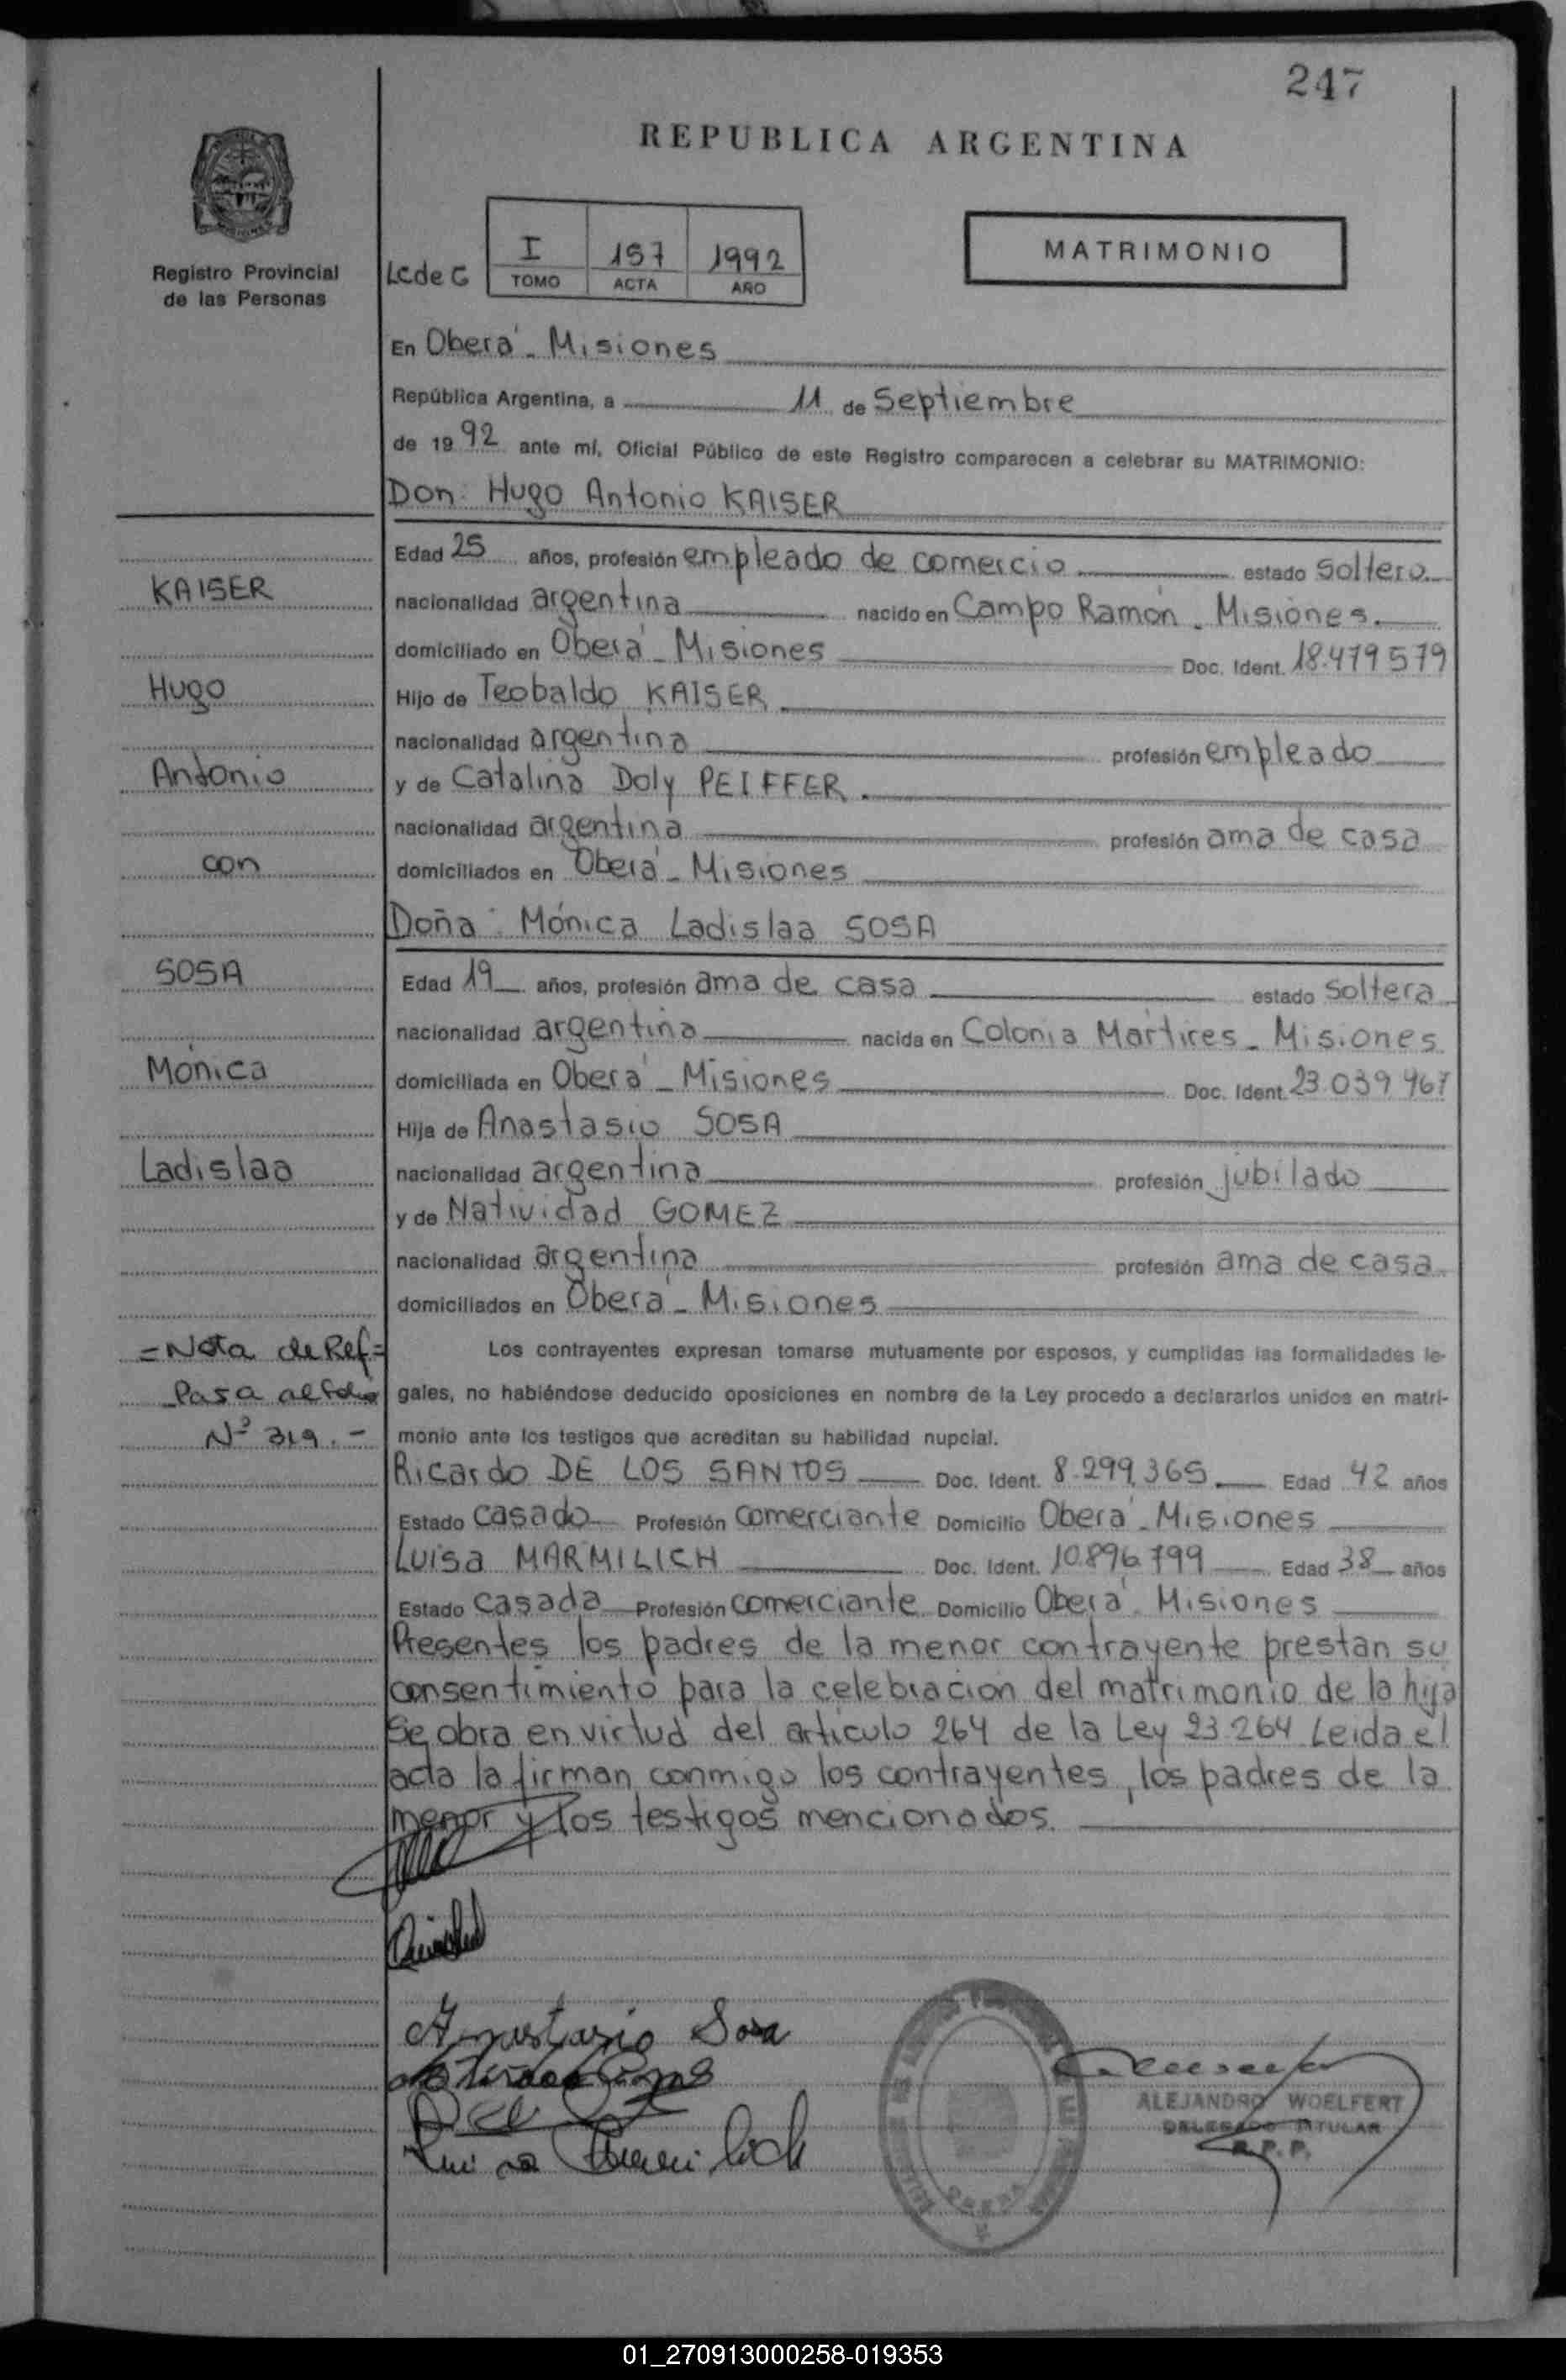 247
REPUBLICA ARGENTINA
Registro Provincial
de las Personas
LcdeG
I 157 1992
TOMO ACTA AÑO
MATRIMONIO
En Oberá - Misiones
República Argentina, a 11 de Septiembre
de 1992 ante mí, Oficial Público de este Registro comparecen a celebrar su MATRIMONIO:
Don: Hugo Antonio KAISER
Edad 25 años, profesión empleado de comercio estado soltero
KAISER
nacionalidad argentina nacido en Campo Ramón - Misiones.
domiciliado en Oberá - Misiones Doc. Ident. 18.479579
Hugo
Hijo de Teobaldo KAISER
nacionalidad argentina profesión empleado
Antonio
y de Catalina Doly PEIFFER.
nacionalidad argentina profesión ama de casa
con
domiciliados en Oberá - Misiones
Doña: Mónica Ladislaa SOSA
SOSA
Edad 19 años, profesión ama de casa estado soltera
nacionalidad argentina nacida en Colonia Mártires - Misiones
Mónica
domiciliada en Oberá - Misiones Doc. Ident. 23.039967
Hija de Anastasio SOSA
Ladislaa
nacionalidad argentina profesión jubilado
y de Natividad GOMEZ
nacionalidad argentina profesión ama de casa
domiciliados en Oberá - Misiones
= Nota de Ref =
Pasa al folio
Nº 319.-
Los contrayentes expresan tomarse mutuamente por esposos, y cumplidas las formalidades le-
gales, no habiéndose deducido oposiciones en nombre de la Ley procedo a declararlos unidos en matri-
monio ante los testigos que acreditan su habilidad nupcial.
Ricardo DE LOS SANTOS Doc. Ident. 8.299.365 Edad 42 años
Estado casado Profesión comerciante Domicilio Oberá - Misiones
Luisa MARMILICH Doc. Ident. 10.896.799 Edad 38 años
Estado casada Profesión comerciante Domicilio Oberá - Misiones
Presentes los padres de la menor contrayente prestan su
consentimiento para la celebracion del matrimonio de la hija
Se obra en virtud del artículo 264 de la Ley 23.264 Leida el
acta la firman conmigo los contrayentes, los padres de la
menor y los testigos mencionados.
Anastasio Sosa
ALEJANDRO WOELFERT
DELEGADO TITULAR
R.P.P.
OBERA
01_270913000258-019353